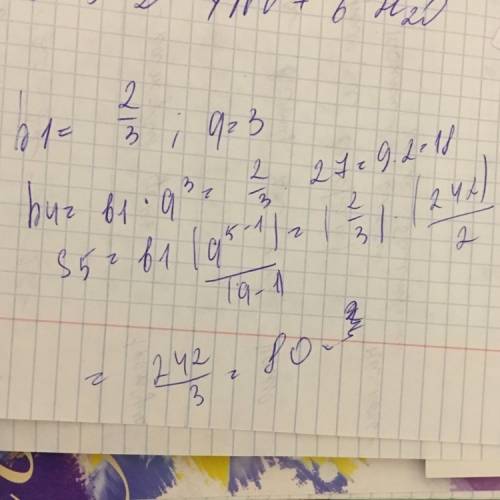 + 6 H2O
b1 = 2/3 ; q = 3
b4 = b1 · q^3 = 2/3 · 27 = 9 · 2 = 18
S5 = b1 (q^5-1) / (q-1) = (2/3) · (242)/2
= 242/3 = 80